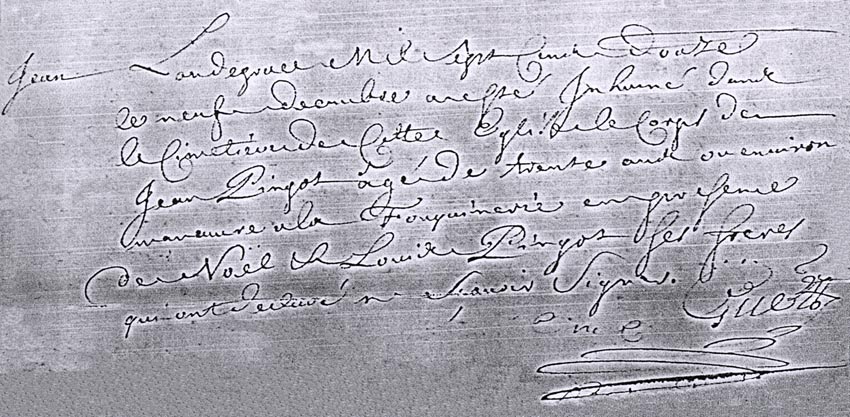 Jean Landegrace Mil Sept Cent Douze
le neufe decembre a esté Inhumé dans
le Cimetiere de Cette Eglise le Corps de
Jean Pingot âgé de trente ans ou environ
manœuvre a la Fouquinerie en presence
de Noël & Louis Pingot ses freres
qui ont declaré ne Scavoir Signer.